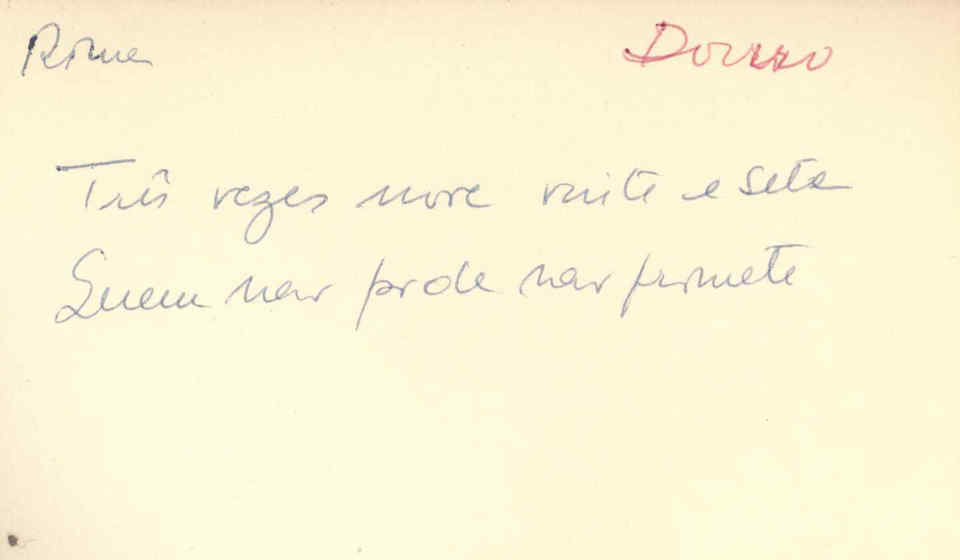 Rima
Três vezes nove vinte e sete
Quem não pode não promete